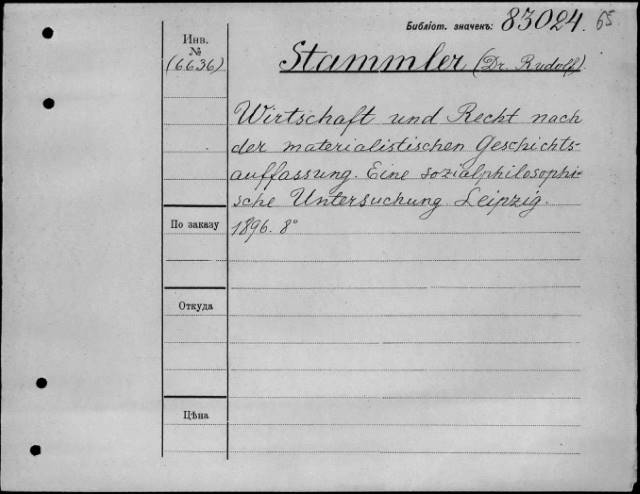 Библіот. значекъ: 83024. 65
Инв.
№
(6636)
Stammler (Dr. Rudolf).
Wirtschaft und Recht nach
der materialistischen Geschichts-
auffassung. Eine sozialphilosophi-
sche Untersuchung Leipzig.
По заказу
1896. 8°
Откуда
Цѣна